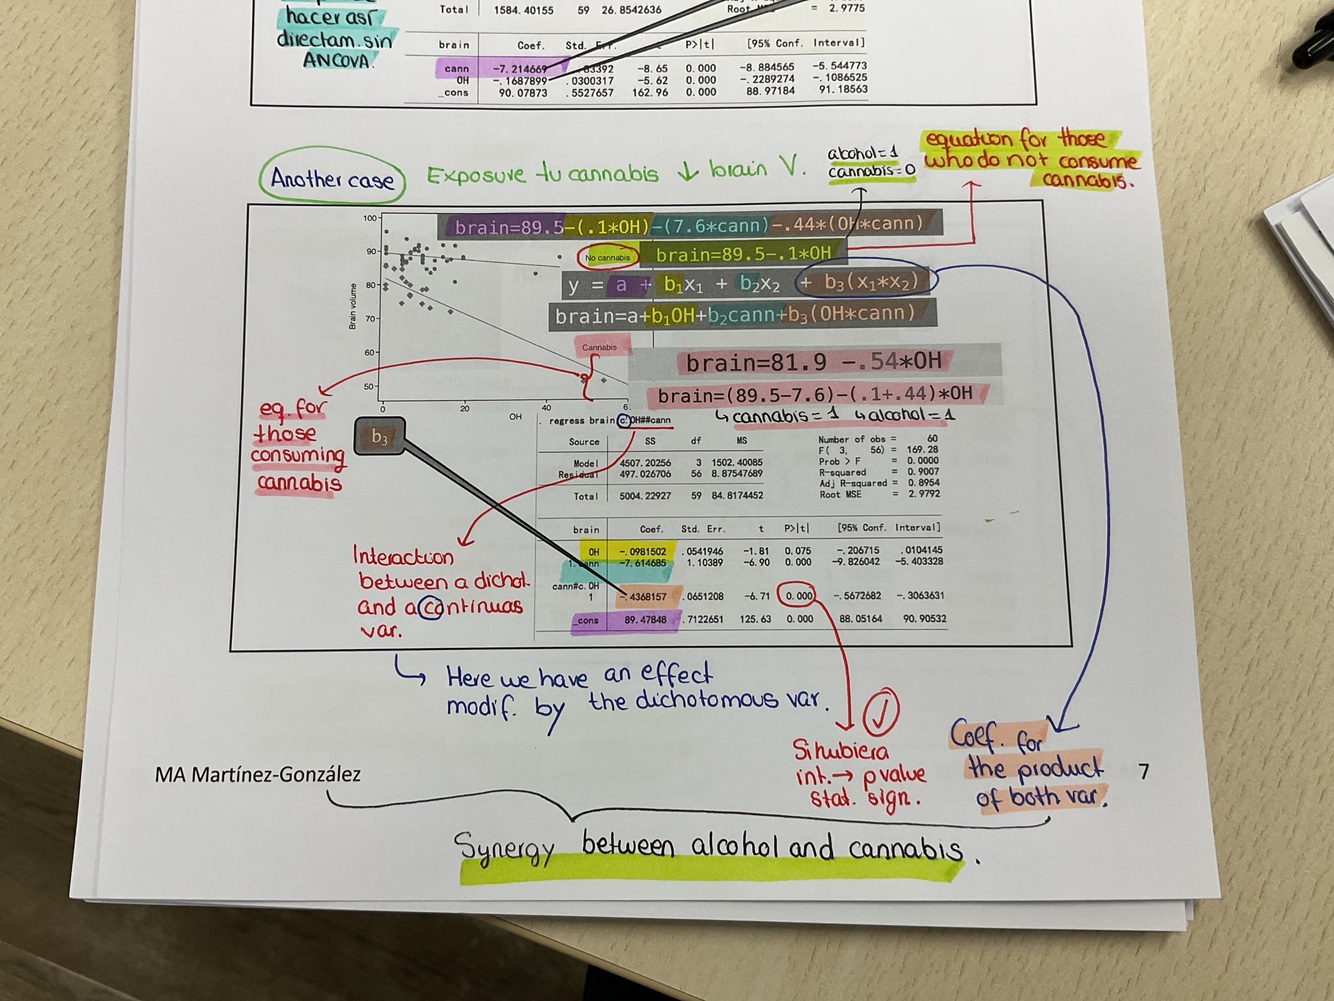 hacer así
directam. sin
ANCOVA.
Total 1584.40155 59 26.8542636 Root = 2.9775
brain Coef. Std. Err. P>|t| [95% Conf. Interval]
cann -7.214669 -8.65 0.000 -8.884565 -5.544773
OH -.1687899 .0300317 -5.62 0.000 -.2289274 -.1086525
_cons 90.07873 .5527657 162.96 0.000 88.97184 91.18563
Another case
Exposure tu cannabis ↓ brain V.
alcohol=1
cannabis=0
equation for those
who do not consume
cannabis.
brain=89.5-(.1*OH)-(7.6*cann)-.44*(OH*cann)
No cannabis
brain=89.5-.1*OH
y = a + b1x1 + b2x2 + b3(x1*x2)
brain=a+b1OH+b2cann+b3(OH*cann)
Cannabis
brain=81.9 -.54*OH
brain=(89.5-7.6)-(.1+.44)*OH
↳ cannabis=1 ↳ alcohol=1
Brain volume
100
90
80
70
60
50
0 20 40 6
OH
eq. for
those
consuming
cannabis
b3
. regress brain c.OH##cann
Source SS df MS
Model 4507.20256 3 1502.40085
Residual 497.026706 56 8.87547689
Total 5004.22927 59 84.8174452
Number of obs = 60
F( 3, 56) = 169.28
Prob > F = 0.0000
R-squared = 0.9007
Adj R-squared = 0.8954
Root MSE = 2.9792
brain Coef. Std. Err. t P>|t| [95% Conf. Interval]
OH -.0981502 .0541946 -1.81 0.075 -.206715 .0104145
1.cann -7.614685 1.10389 -6.90 0.000 -9.826042 -5.403328
cann#c.OH
1 -.4368157 .0651208 -6.71 0.000 -.5672682 -.3063631
_cons 89.47848 .7122651 125.63 0.000 88.05164 90.90532
Interaction
between a dichot.
and a continuas
var.
↳ Here we have an effect
modif. by the dichotomous var.
Si hubiera
int. → p value
stat. sign.
Coef. for
the product
of both var.
MA Martínez-González
7
Synergy between alcohol and cannabis.